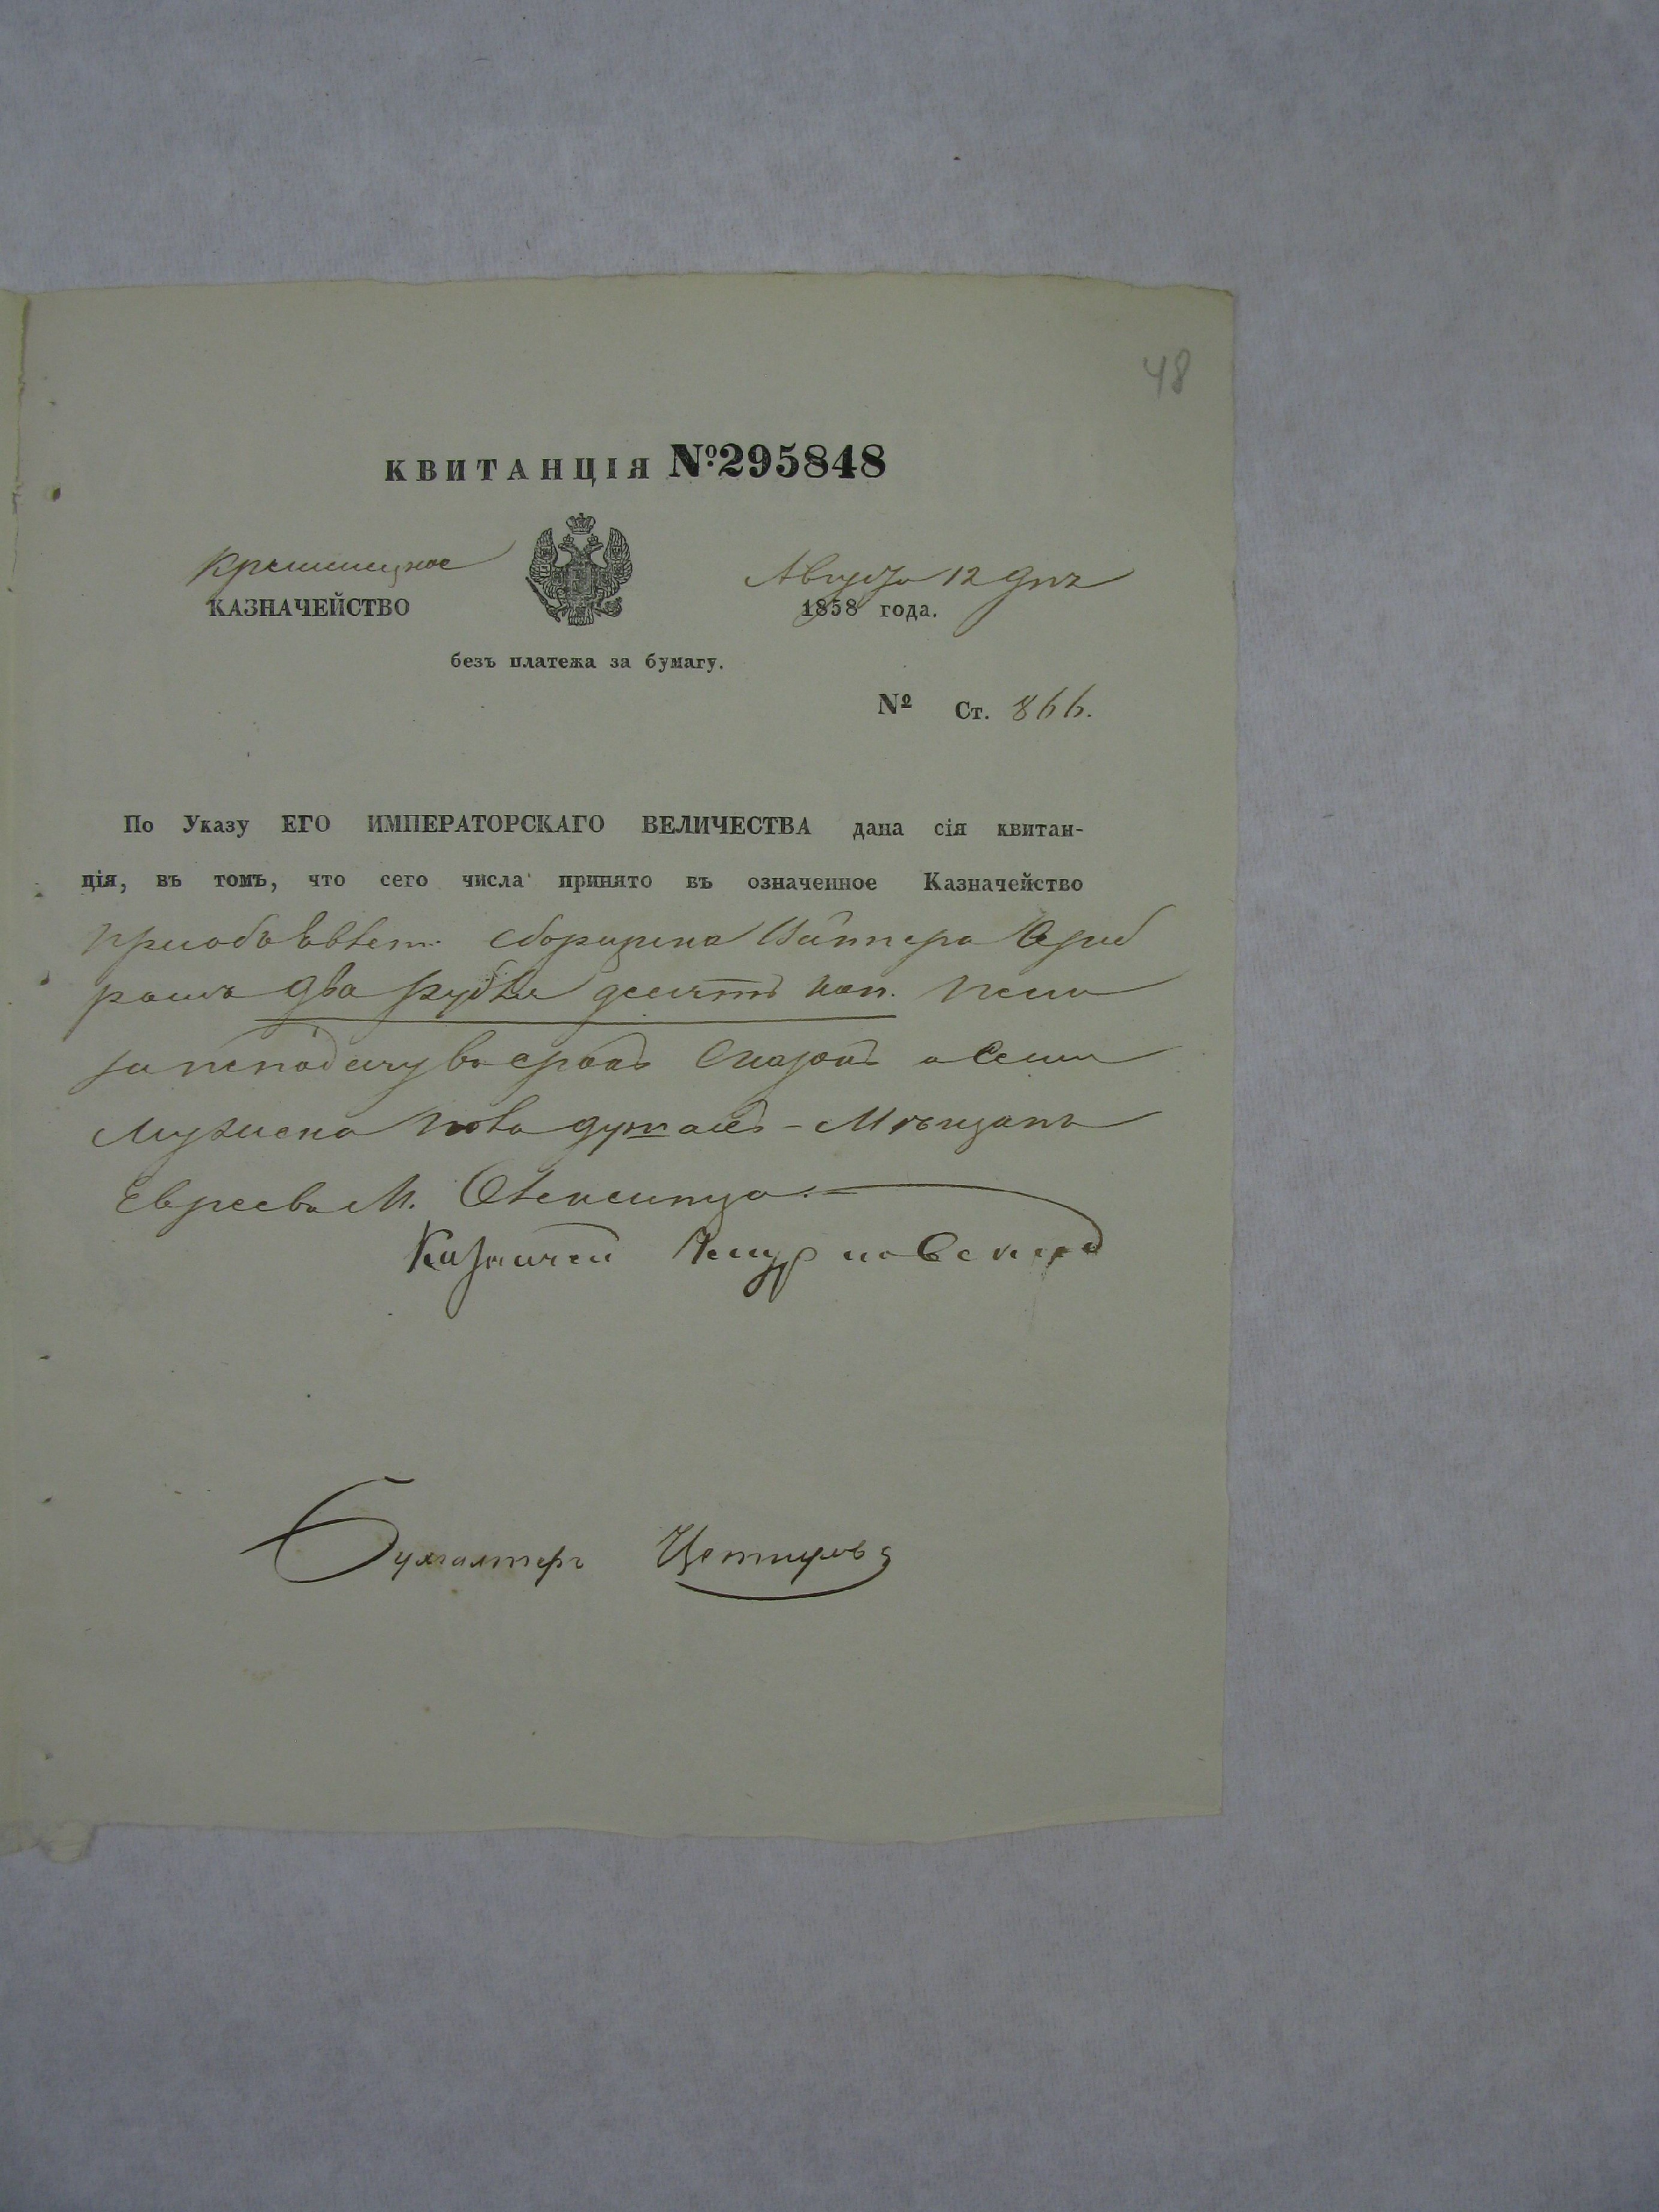 48
КВИТАНЦІЯ №295848
Кременецкое
КАЗНАЧЕЙСТВО
Августа 12 дня
1858 года.
безъ платежа за бумагу.
№ Ст. 866.
По Указу ЕГО ИМПЕРАТОРСКАГО ВЕЛИЧЕСТВА дана сія квитан-
ція, въ томъ, что сего числа принято въ означенное Казначейство
сборщика
два рубля десять коп. пени
за неподачу въ срокъ сказокъ о семи
мужеска пола душахъ - Мѣщанъ
Евреевъ М.
Казначей
Бухгалтеръ